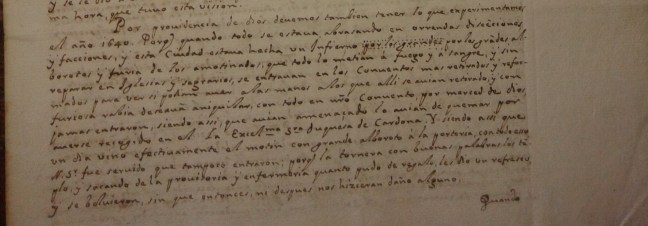 y se se dio a
ma hora, que tuvo esta vision.
Por providencia de dios, devemos tambien tener lo que experimentamos
el año 1640. Porq̃ quando todo se estava abrasando en orrendas diseciones,
y facciones, y esta Ciudad estava hecha un Infierno por los grandes al
borotos y furia de los amotinados, que todo lo metian a fuego y a sangre, y sin
reparar en Iglesias y sagrarios, se entravan en los Conventos mas retirados y refor
mados para ver si podian aver a las manos a los que alli se avian retirado, y con
furiosa rabia deseavan aniquilar, con todo en nro Convento, por merced de dios,
jamas entraron, siendo assi, que avian amenaçado lo avian de quemar por
averse recogido en el la Excelma sra duquesa de Cardona. Y siendo assi que
un dia vino efectivamente el motin con grande alboroto a la porteria, con todo esso
N. Sr. fue servido que tampoco entraron; porq̃ la tornera con buenas palabras los
plo, y sacando de la provisoria y enfermeria quanto pudo de regalo, les dio un refresco,
y se bolvieron, sin que entonces, ni despues nos hizieran daño alguno.
Quando